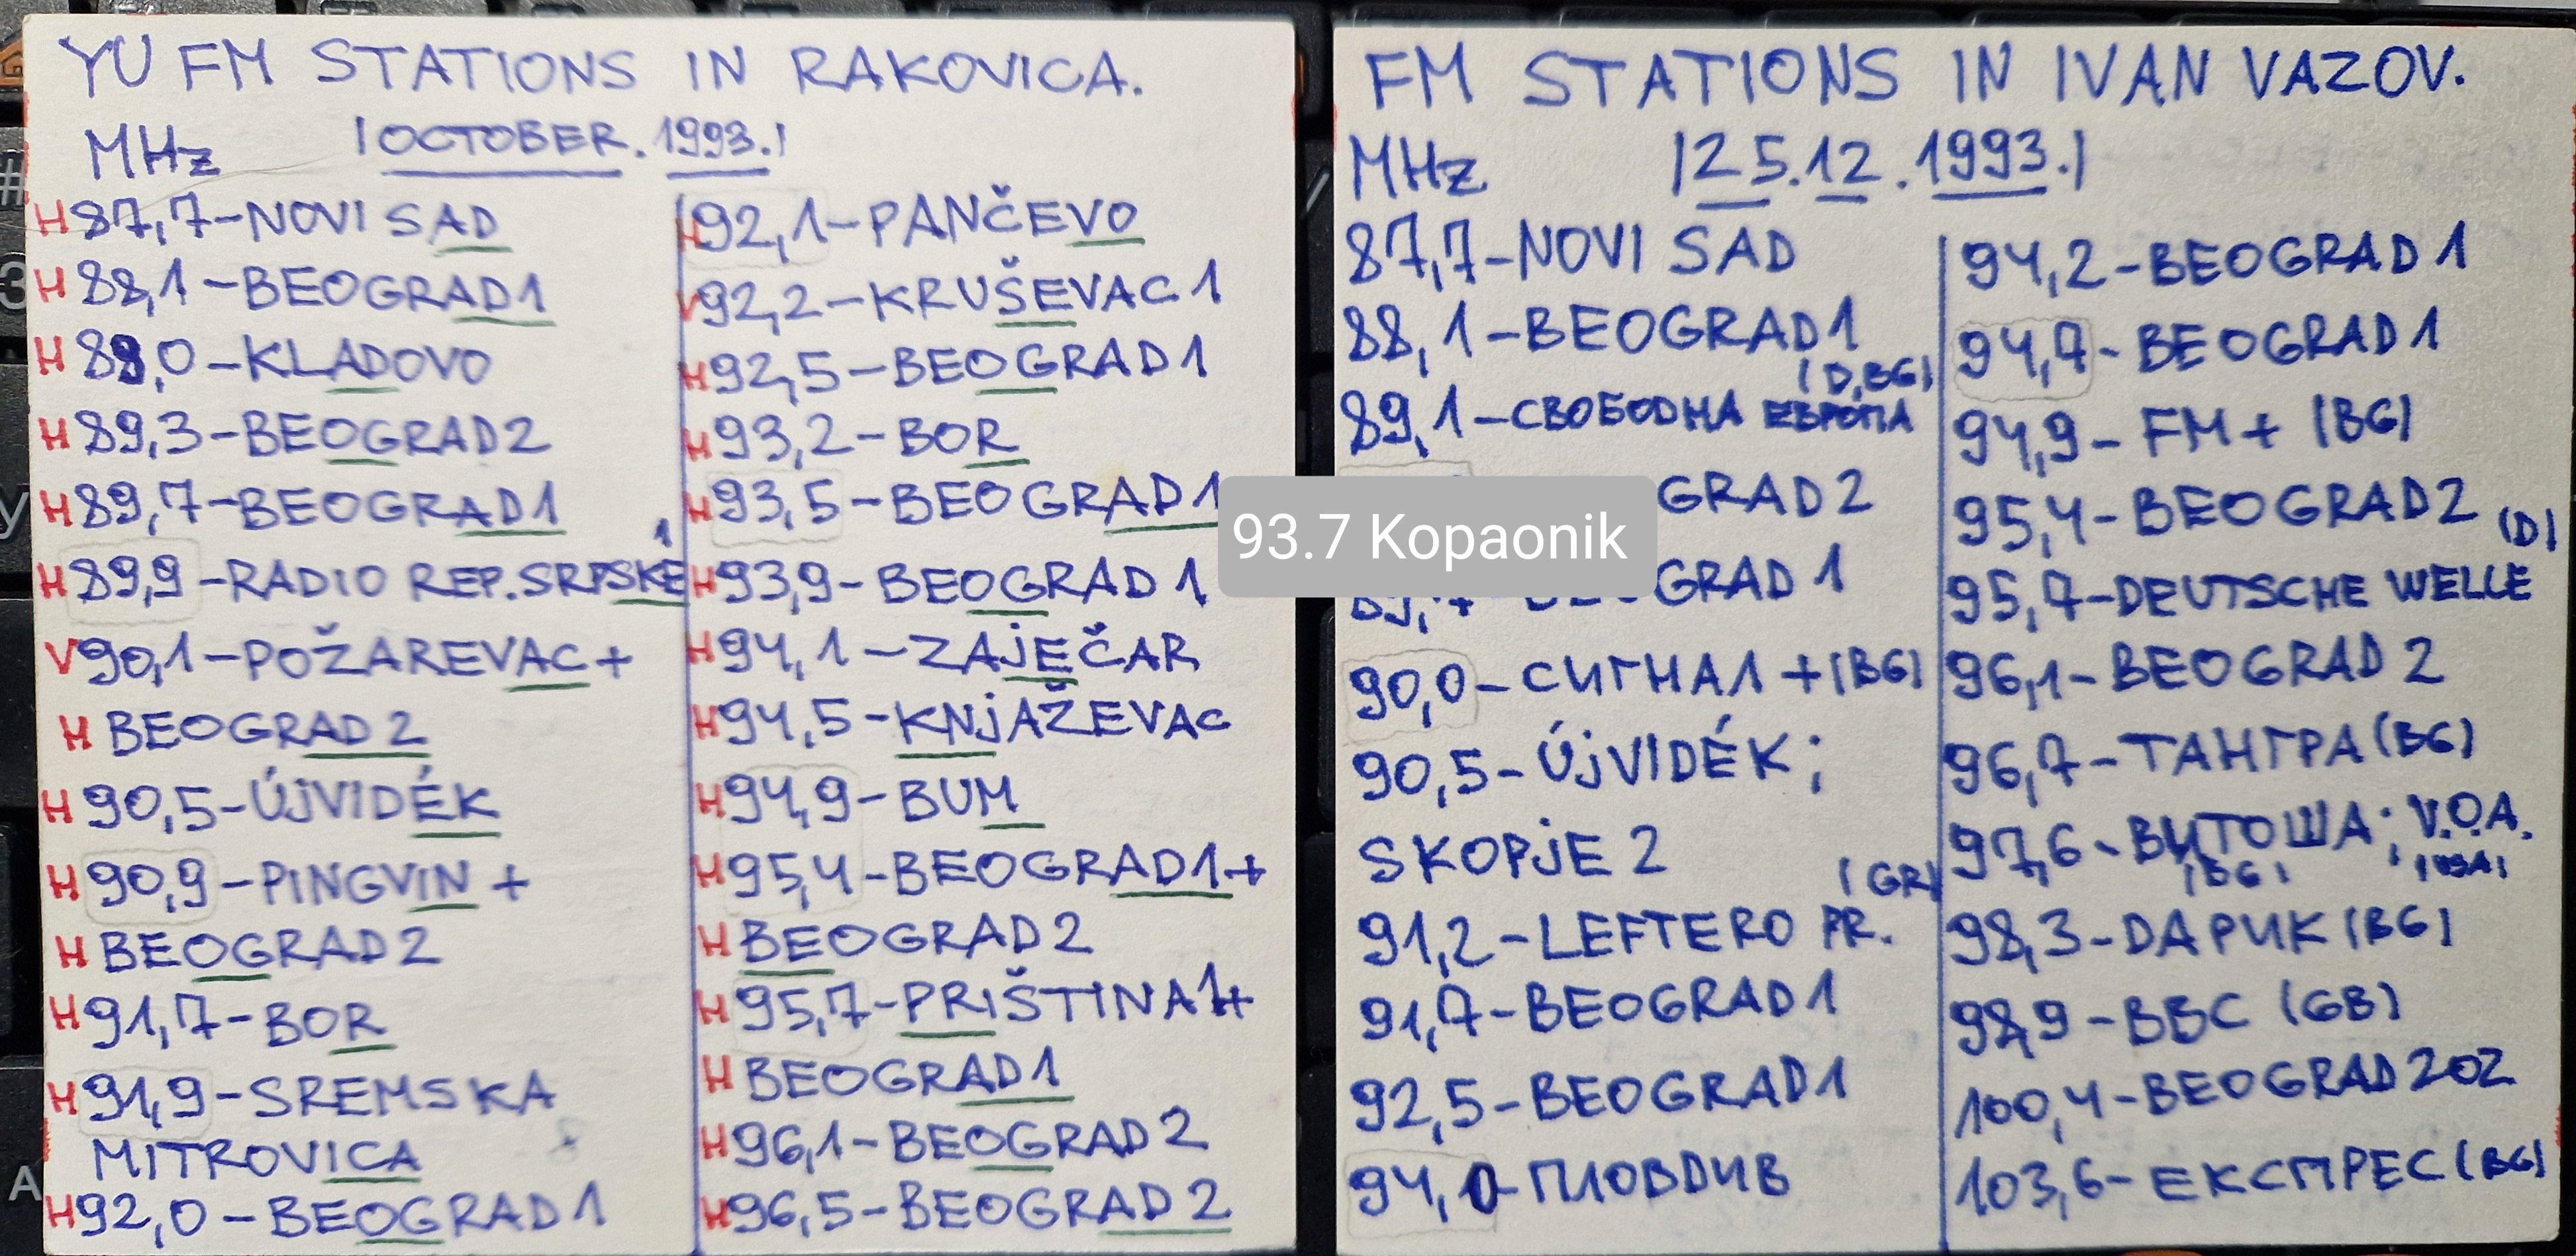 YU FM STATIONS IN RAKOVICA.
MHz |OCTOBER.1993.|
H 87,7-NOVI SAD
H 88,1-BEOGRAD1
H 89,0-KLADOVO
H 89,3-BEOGRAD2
H 89,7-BEOGRAD1
H 89,9-RADIO REP.SRPSKE 1
V 90,1-POŽAREVAC+
H BEOGRAD2
H 90,5-ÚJVIDÉK
H 90,9-PINGVIN+
H BEOGRAD2
H 91,7-BOR
H 91,9-SREMSKA
MITROVICA
H 92,0-BEOGRAD1
H 92,1-PANČEVO
V 92,2-KRUŠEVAC1
H 92,5-BEOGRAD1
H 93,2-BOR
H 93,5-BEOGRAD1
H 93,9-BEOGRAD1
H 94,1-ZAJEČAR
H 94,5-KNJAŽEVAC
H 94,9-BUM
H 95,4-BEOGRAD1+
H BEOGRAD2
H 95,7-PRIŠTINA1+
H BEOGRAD1
H 96,1-BEOGRAD2
H 96,5-BEOGRAD2
93.7 Kopaonik
FM STATIONS IN IVAN VAZOV.
MHz |25.12.1993.|
87,7-NOVI SAD
88,1-BEOGRAD1
(D,BG)
89,1-СВОБОДНА ЕВРОПА
GRAD2
GRAD1
90,0-СИГНАЛ+(BG)
90,5-ÚJVIDÉK;
SKOPJE2
(GR)
91,2-LEFTERO PR.
91,7-BEOGRAD1
92,5-BEOGRAD1
94,0-ПЛОВДИВ
94,2-BEOGRAD1
94,7-BEOGRAD1
94,9-FM+(BG)
95,4-BEOGRAD2
(D)
95,7-DEUTSCHE WELLE
96,1-BEOGRAD2
96,7-ТАНГРА(BG)
97,6-ВИТОША; V.O.A.
(BG) (USA)
98,3-ДАРИК(BG)
98,9-BBC (GB)
100,4-BEOGRAD202
103,6-ЕКСПРЕС(BG)